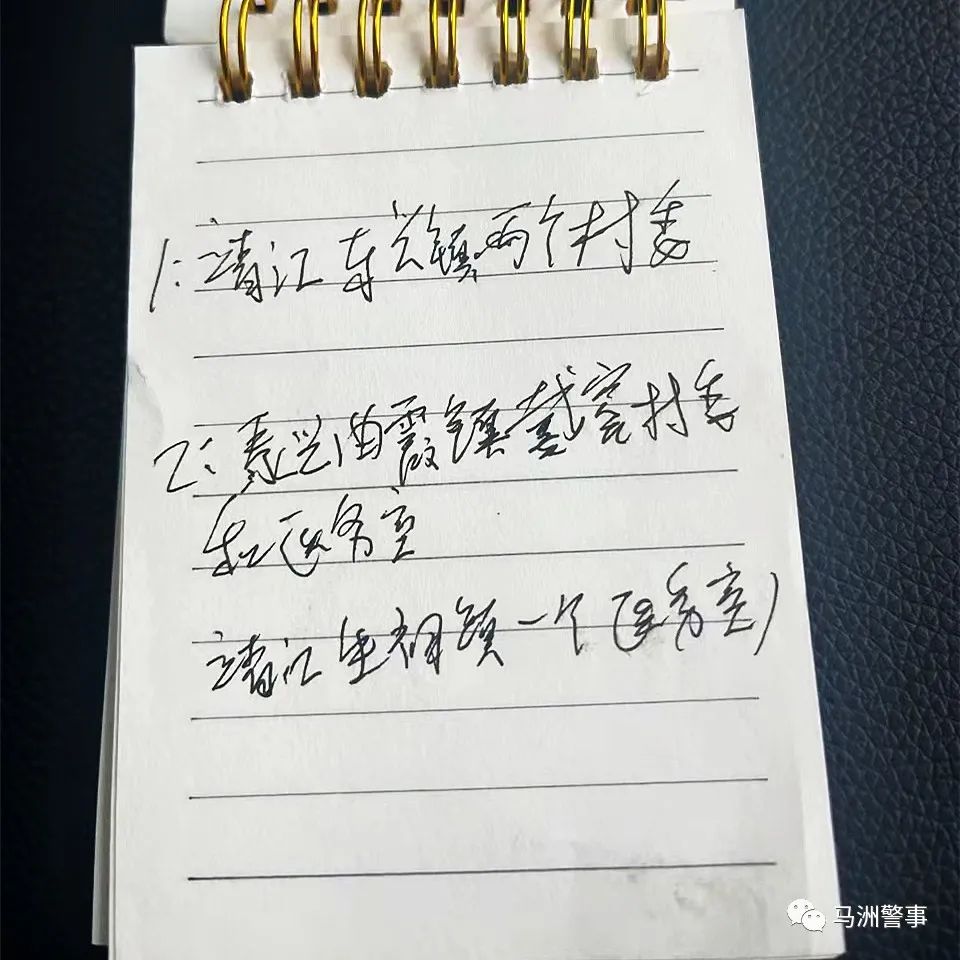 1:靖江东兴镇两个村委
2:泰兴曲霞镇戴窑村委
和医务室
靖江生祠镇一个(医务室)
马洲警事